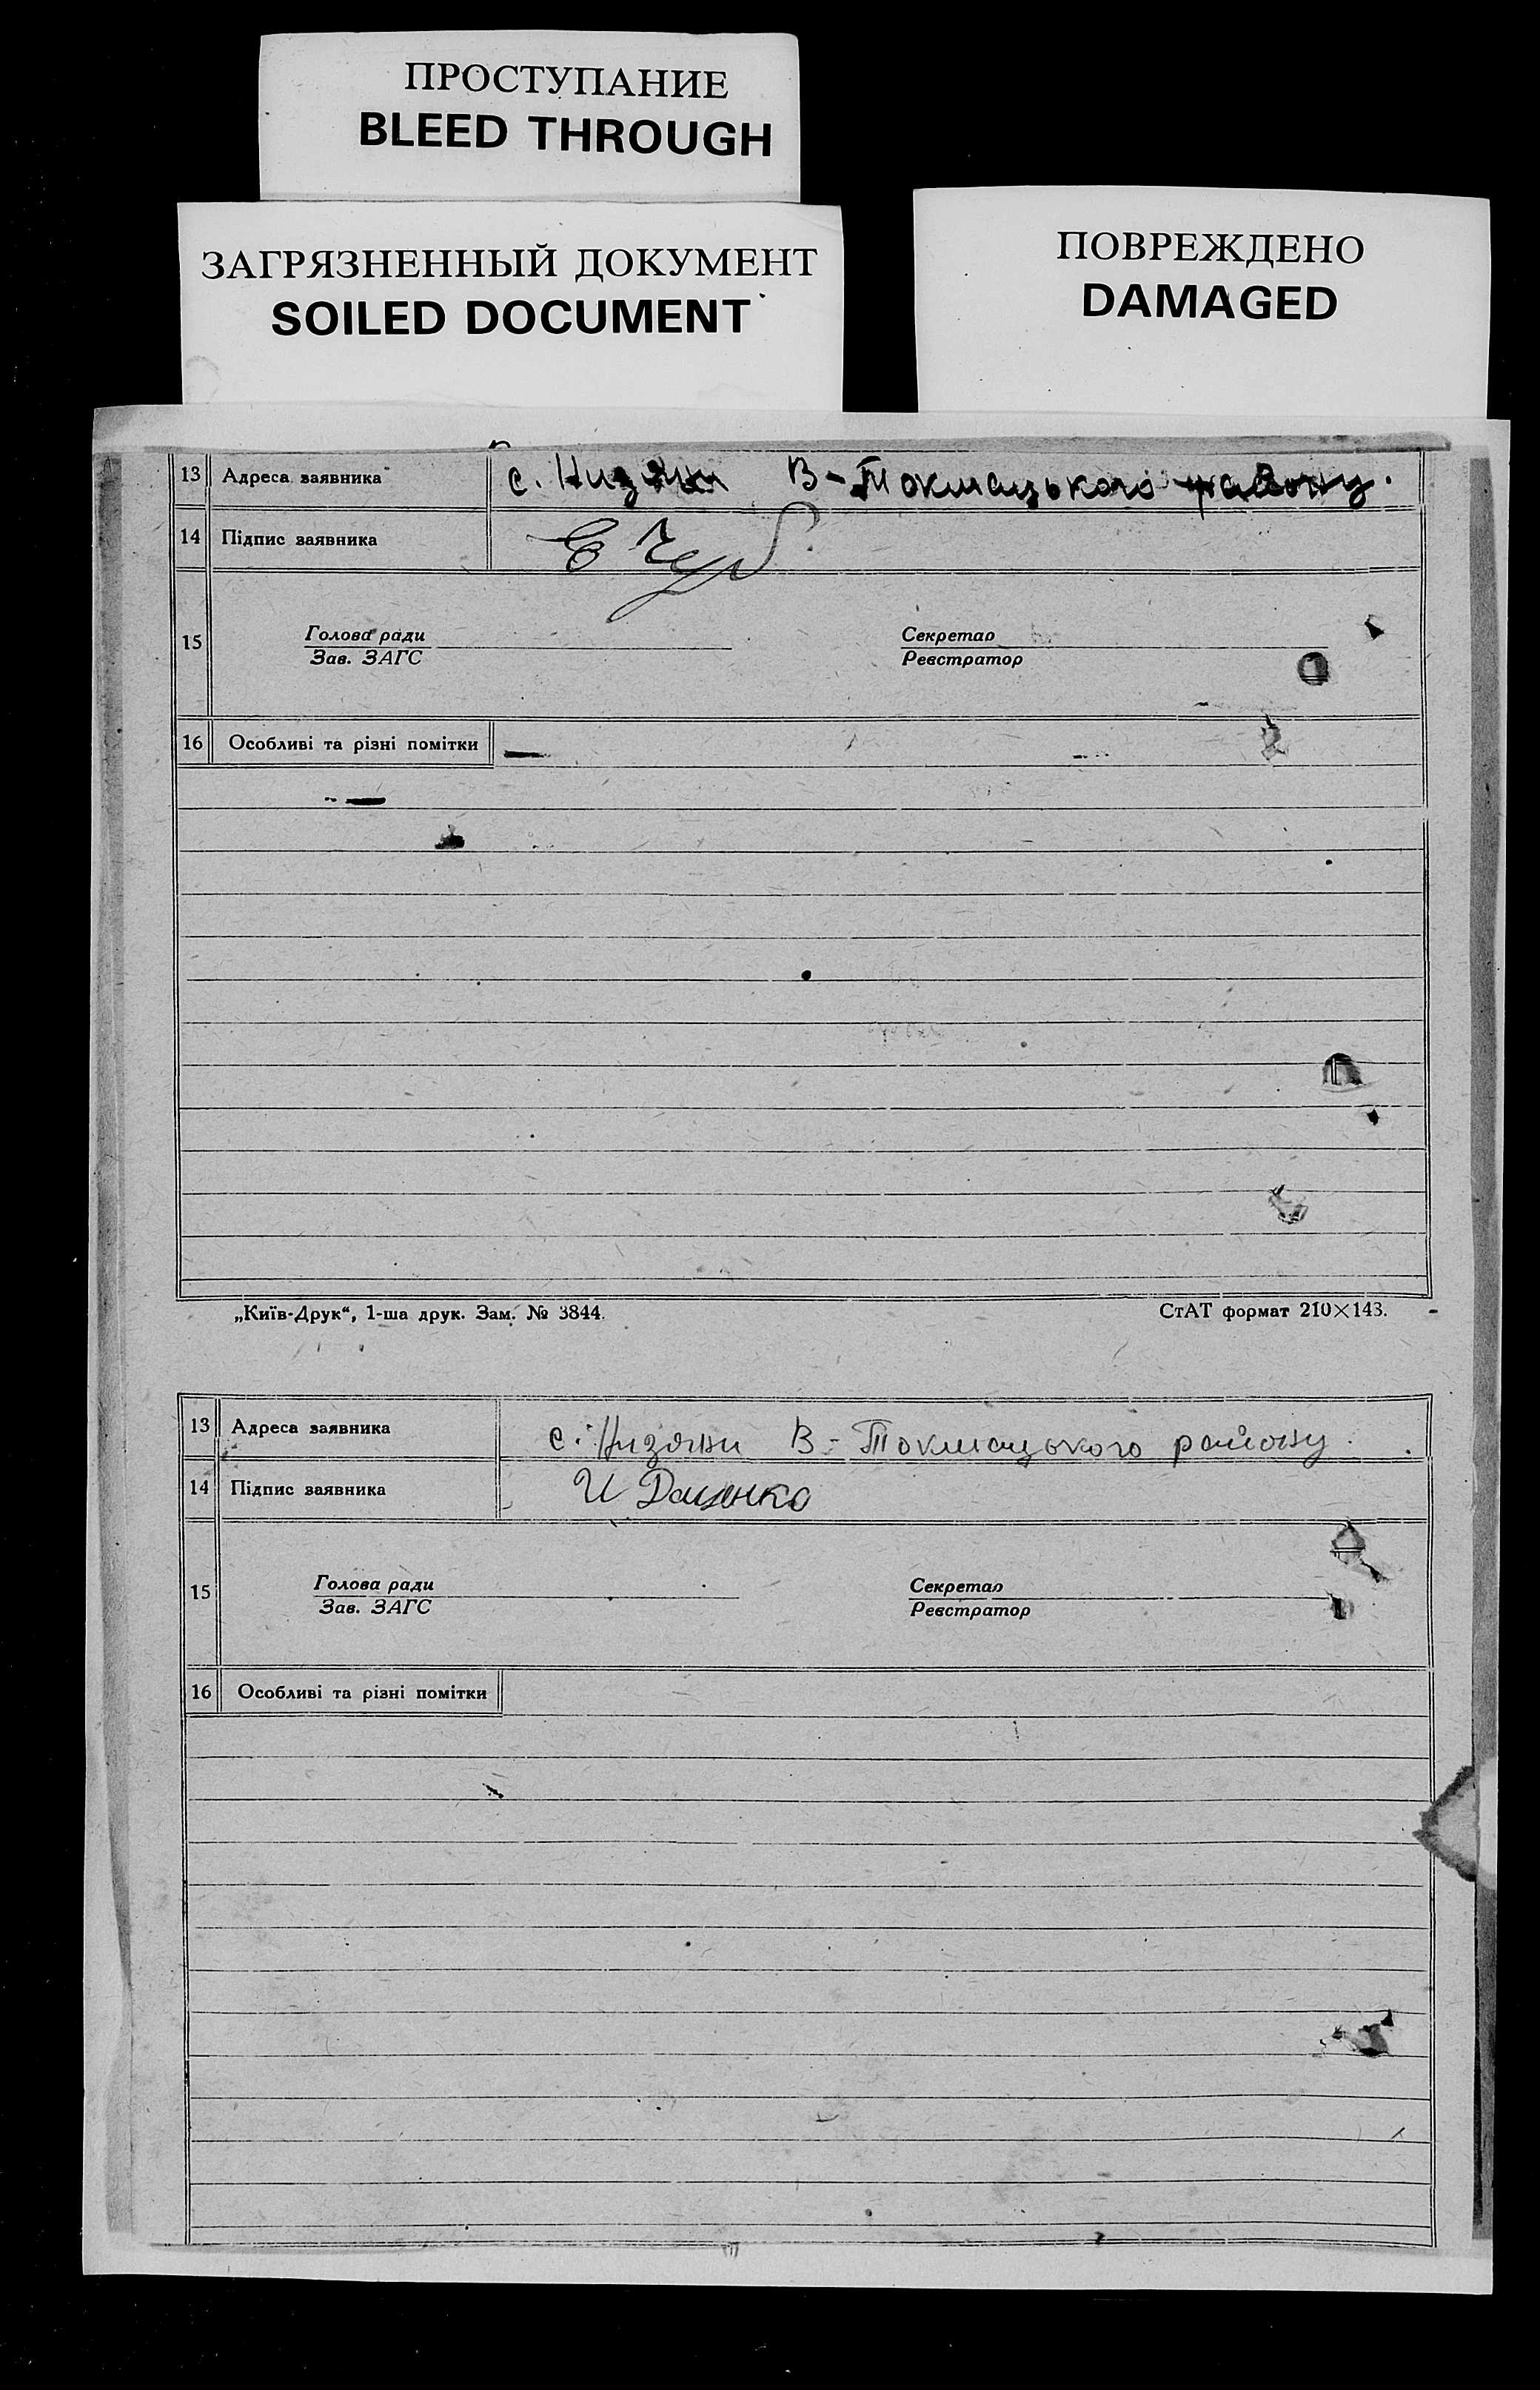 ПРОСТУПАНИЕ
BLEED THROUGH
ЗАГРЯЗНЕННЫЙ ДОКУМЕНТ
SOILED DOCUMENT
ПОВРЕЖДЕНО
DAMAGED
13 Адреса заявника с. Низяни В-Токмацького району.
14 Підпис заявника Е
15
Голова ради Секретар
Зав. ЗАГС Реєстратор
16 Особливі та різні помітки
„Київ-Друк“, 1-ша друк. Зам. № 3844. СтАТ формат 210×143.
13 Адреса заявника с. Низяни В-Токмацького району.
14 Підпис заявника И Даценко
15
Голова ради Секретар
Зав. ЗАГС Реєстратор
16 Особливі та різні помітки